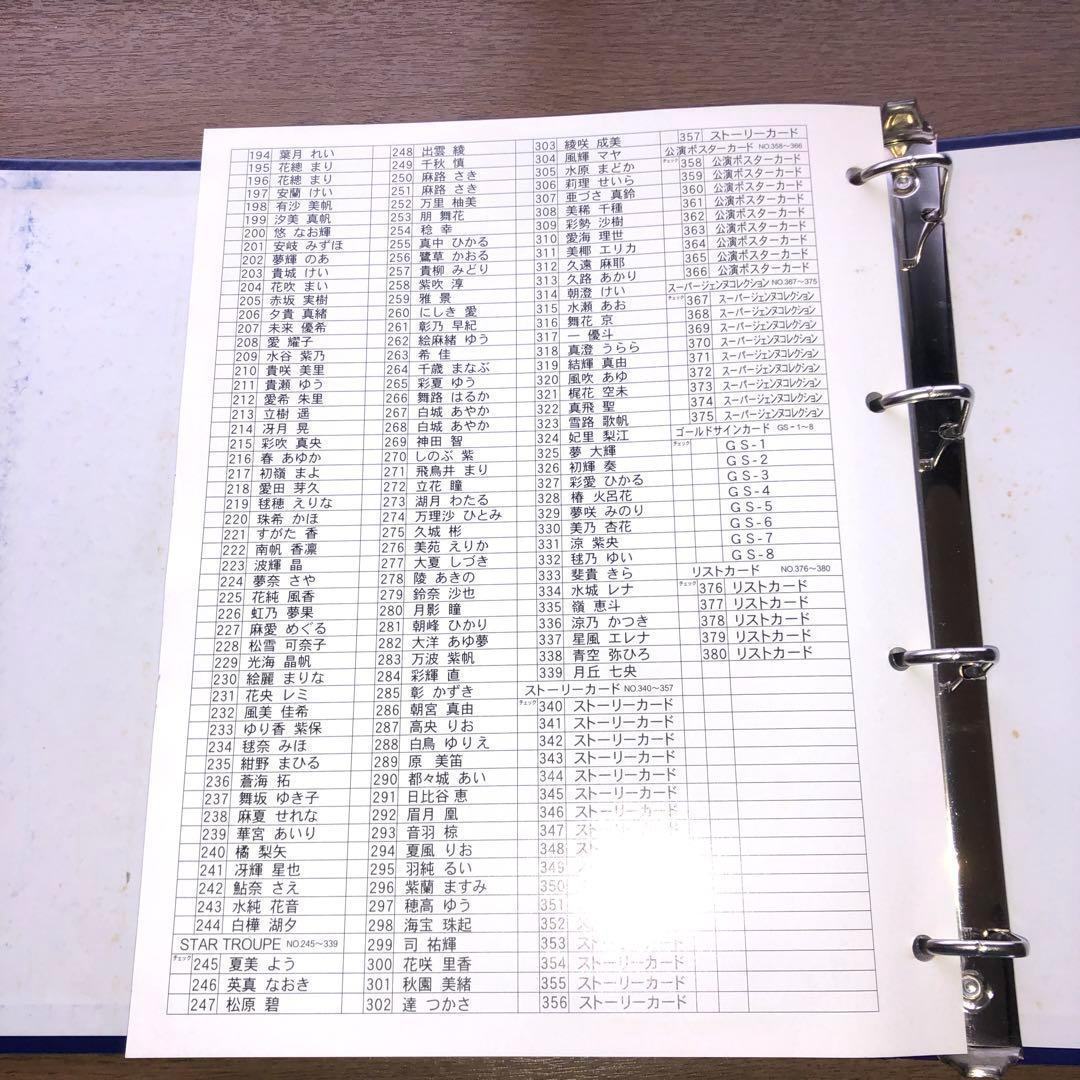 194 葉月 れい
195 花總 まり
196 花總 まり
197 安蘭 けい
198 有沙 美帆
199 汐美 真帆
200 悠 なお輝
201 安岐 みずほ
202 夢輝 のあ
203 貴城 けい
204 花吹 まい
205 赤坂 実樹
206 夕貴 真緒
207 未来 優希
208 愛 耀子
209 水谷 紫乃
210 貴咲 美里
211 貴瀬 ゆう
212 愛希 朱里
213 立樹 遥
214 冴月 晃
215 彩吹 真央
216 春 あゆか
217 初嶺 まよ
218 愛田 芽久
219 毬穂 えりな
220 珠希 かほ
221 すがた 香
222 南帆 香凛
223 波輝 晶
224 夢奈 さや
225 花純 風香
226 虹乃 夢果
227 麻愛 めぐる
228 松雪 可奈子
229 光海 晶帆
230 絵麗 まりな
231 花央 レミ
232 風美 佳希
233 ゆり香 紫保
234 毬奈 みほ
235 紺野 まひる
236 蒼海 拓
237 舞坂 ゆき子
238 麻夏 せれな
239 華宮 あいり
240 橘 梨矢
241 冴輝 星也
242 鮎奈 さえ
243 水純 花音
244 白樺 湖夕
STAR TROUPE NO.245〜339
チェック 245 夏美 よう
246 英真 なおき
247 松原 碧
248 出雲 綾
249 千秋 慎
250 麻路 さき
251 麻路 さき
252 万里 柚美
253 朋 舞花
254 稔 幸
255 真中 ひかる
256 鷺草 かおる
257 貴柳 みどり
258 紫吹 淳
259 雅 景
260 にしき 愛
261 彰乃 早紀
262 絵麻緒 ゆう
263 希 佳
264 千歳 まなぶ
265 彩夏 ゆう
266 舞路 はるか
267 白城 あやか
268 白城 あやか
269 神田 智
270 しのぶ 紫
271 飛鳥井 まり
272 立花 瞳
273 湖月 わたる
274 万理沙 ひとみ
275 久城 彬
276 美苑 えりか
277 大夏 しづき
278 陵 あきの
279 鈴奈 沙也
280 月影 瞳
281 朝峰 ひかり
282 大洋 あゆ夢
283 万波 紫帆
284 彩輝 直
285 彰 かずき
286 朝宮 真由
287 高央 りお
288 白鳥 ゆりえ
289 原 美笛
290 都々城 あい
291 日比谷 恵
292 眉月 凰
293 音羽 椋
294 夏風 りお
295 羽純 るい
296 紫蘭 ますみ
297 穂高 ゆう
298 海宝 珠起
299 司 祐輝
300 花咲 里香
301 秋園 美緒
302 達 つかさ
303 綾咲 成美
304 風輝 マヤ
305 水原 まどか
306 莉理 せいら
307 亜づさ 真鈴
308 美稀 千種
309 彩勢 沙樹
310 愛海 理世
311 美椰 エリカ
312 久遠 麻耶
313 久路 あかり
314 朝澄 けい
315 水瀬 あお
316 舞花 京
317 一 優斗
318 真澄 うらら
319 結輝 真由
320 風吹 あゆ
321 梶花 空未
322 真飛 聖
323 雪路 歌帆
324 妃里 梨江
325 夢 大輝
326 初輝 奏
327 彩愛 ひかる
328 椿 火呂花
329 夢咲 みのり
330 美乃 杏花
331 涼 紫央
332 毬乃 ゆい
333 斐貴 きら
334 水城 レナ
335 嶺 恵斗
336 涼乃 かつき
337 星風 エレナ
338 青空 弥ひろ
339 月丘 七央
ストーリーカード NO.340〜357
チェック 340 ストーリーカード
341 ストーリーカード
342 ストーリーカード
343 ストーリーカード
344 ストーリーカード
345 ストーリーカード
346 ストーリーカード
347 ストーリーカード
348
349
350
351
352
353 ストーリーカード
354 ストーリーカード
355 ストーリーカード
356 ストーリーカード
357 ストーリーカード
公演ポスターカード NO.358〜366
チェック 358 公演ポスターカード
359 公演ポスターカード
360 公演ポスターカード
361 公演ポスターカード
362 公演ポスターカード
363 公演ポスターカード
364 公演ポスターカード
365 公演ポスターカード
366 公演ポスターカード
スーパージェンヌコレクション NO.367〜375
チェック 367 スーパージェンヌコレクション
368 スーパージェンヌコレクション
369 スーパージェンヌコレクション
370 スーパージェンヌコレクション
371 スーパージェンヌコレクション
372 スーパージェンヌコレクション
373 スーパージェンヌコレクション
374 スーパージェンヌコレクション
375 スーパージェンヌコレクション
ゴールドサインカード GS-1〜8
チェック GS-1
GS-2
GS-3
GS-4
GS-5
GS-6
GS-7
GS-8
リストカード NO.376〜380
チェック 376 リストカード
377 リストカード
378 リストカード
379 リストカード
380 リストカード